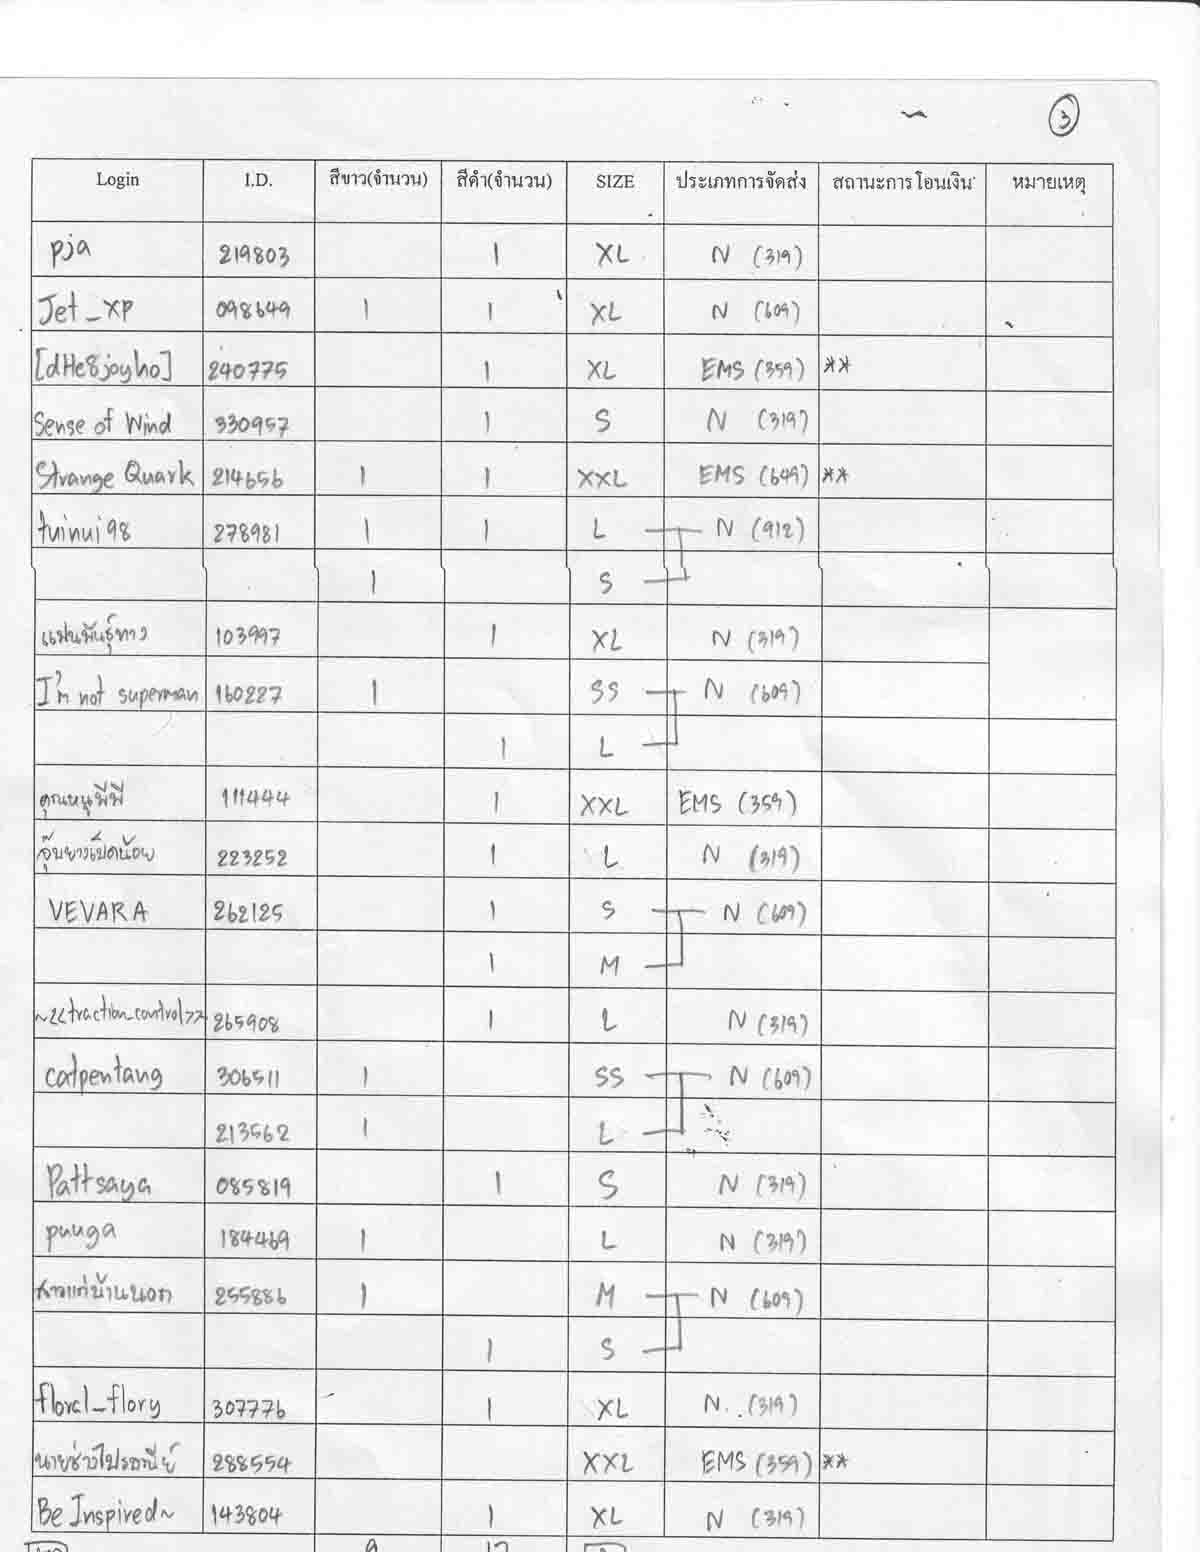 3
Login I.D. สีขาว(จำนวน) สีดำ(จำนวน) SIZE ประเภทการจัดส่ง สถานะการโอนเงิน หมายเหตุ
pja 219803 1 XL N (319)
Jet_xp 098649 1 1 XL N (609)
[dHe8joyho] 240775 1 XL EMS (359) **
Sense of Wind 330957 1 S N (319)
Strange Quark 214656 1 1 XXL EMS (649) **
tuinui98 278981 1 1 L N (912)
1 S
แฟนพันธุ์ทาง 103997 1 XL N (319)
I'm not superman 160227 1 SS N (609)
1 L
คุณหนูพีพี 111444 1 XXL EMS (359)
จุ๊บยางเป็ดน้อย 223252 1 L N (319)
VEVARA 262125 1 S N (609)
1 M
~<<traction_control>> 265908 1 L N (319)
catpentang 306511 1 SS N (609)
213562 1 L
Pattsaya 085819 1 S N (319)
puuga 184469 1 L N (319)
สาวแก่บ้านนอก 255886 1 M N (609)
1 S
floral_flory 307776 1 XL N (319)
นายช่างไปรษณีย์ 288554 XXL EMS (359) **
Be Inspired~ 143804 1 XL N (319)